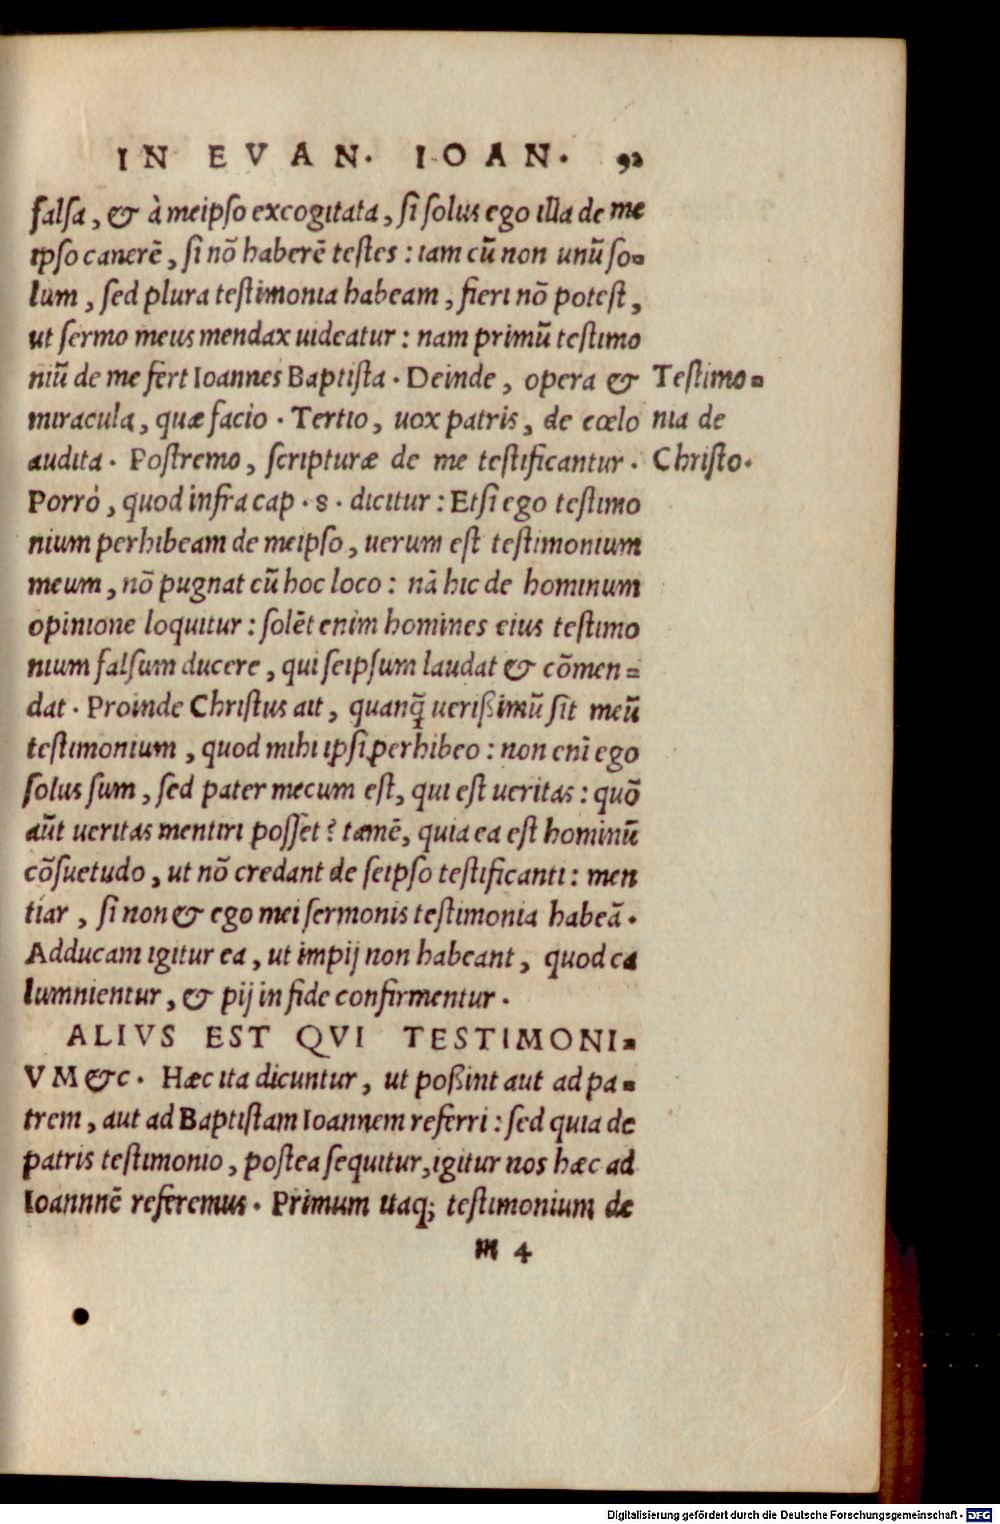 IN EVAN. IOAN. 92
falsa, & à meipso excogitata, si solus ego illa de me
ipso canerē, si nō haberē testes : iam cū non unū so-
lum, sed plura testimonia habeam, fieri nō potest,
ut sermo meus mendax uideatur : nam primū testimo
niū de me fert Ioannes Baptista. Deinde, opera &
miracula, quæ facio. Tertio, uox patris, de cœlo
audita. Postremo, scripturæ de me testificantur.
Testimo-
nia de
Christo.
Porrò, quod infra cap. 8. dicitur : Etsi ego testimo
nium perhibeam de meipso, uerum est testimonium
meum, nō pugnat cū hoc loco : nā hic de hominum
opinione loquitur : solēt enim homines eius testimo
nium falsum ducere, qui seipsum laudat & cōmen-
dat. Proinde Christus ait, quanq̄ uerißimū sit meū
testimonium, quod mihi ipsi perhibeo : non enī ego
solus sum, sed pater mecum est, qui est ueritas : quō
aūt ueritas mentiri posset? tamē, quia ea est hominū
cōsuetudo, ut nō credant de seipso testificanti : men
tiar, si non & ego mei sermonis testimonia habeā.
Adducam igitur ea, ut impij non habeant, quod ca
lumnientur, & pij in fide confirmentur.
ALIVS EST QVI TESTIMONI-
VM &c. Hæc ita dicuntur, ut poßint aut ad pa-
trem, aut ad Baptistam Ioannem referri : sed quia de
patris testimonio, postea sequitur, igitur nos hæc ad
Ioannnē referemus. Primum itaq; testimonium de
m 4
Digitalisierung gefördert durch die Deutsche Forschungsgemeinschaft - DFG